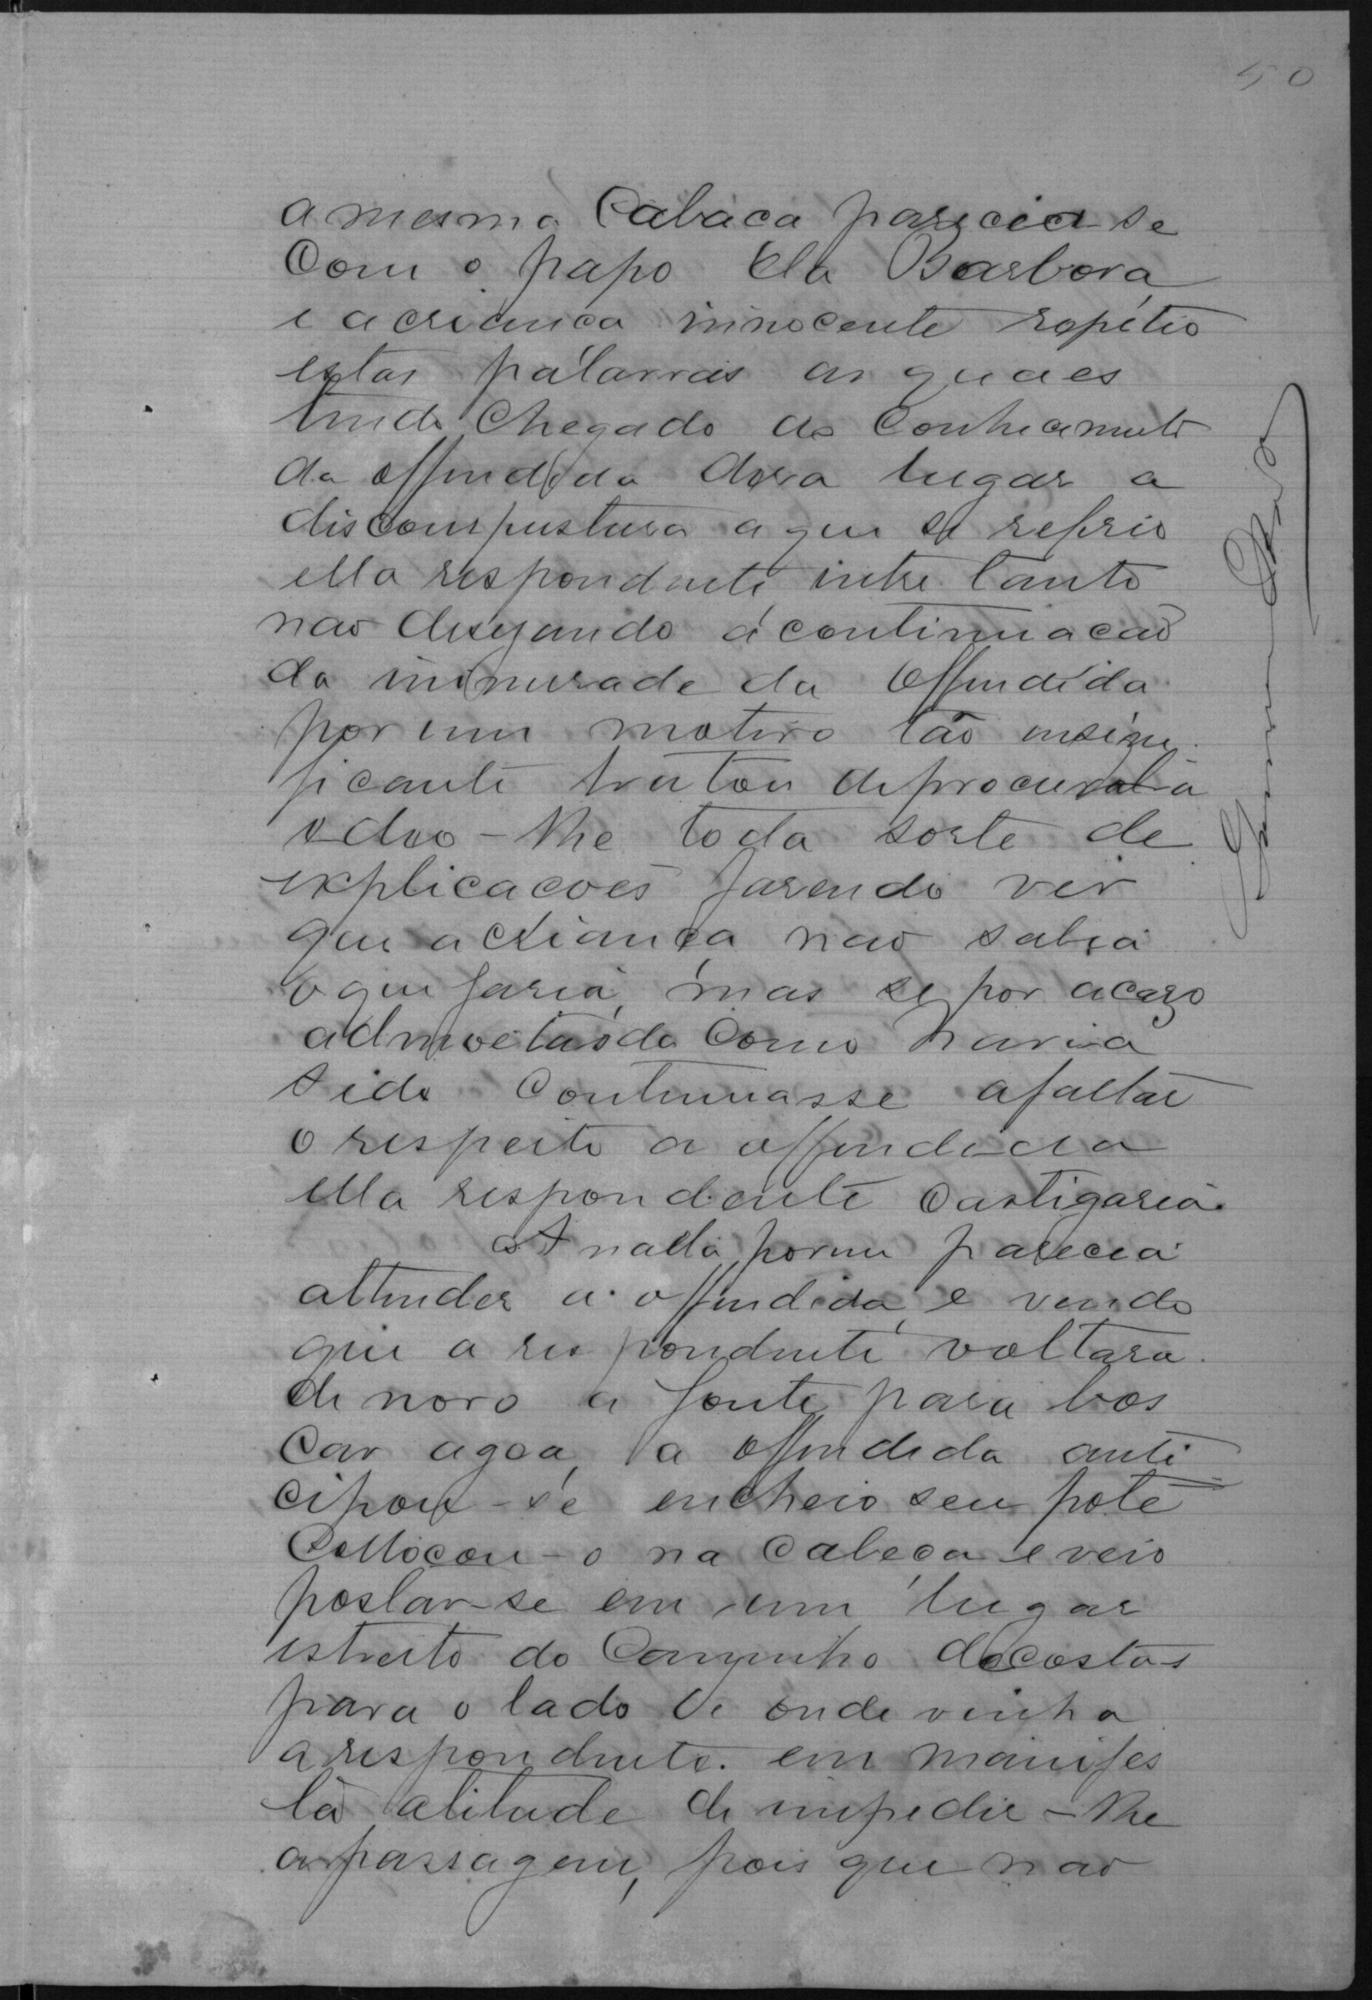 50
a mesma Cabaca parecia-se
Com o papo da Barbora
e a crianca innocente repitio
estas palavras as quaes
tendo Chegado ao Conhecimento
da offendida dera lugar a
discompustura a que se refrio
ella respondente entre tanto
nao desejando a continuacaõ
da inimisade da offendida
por um motivo tão insigni
ficante tratou de procural-a
e deo-lhe toda sorte de
explicacoes fasendo ver
que a crianca nao sabia
o que fasia, mas se por acazo
admoestada Como havia
sido Continuasse a faltar
o respeito a offendida
ella respondente Castigaria.
A nada porem parecia
attender a offendida, e vendo
que a respondente voltara
de novo a fonte para bos
car agoa, a offendida anti
cipou-se encheio seu pote
Collocou-o na Cabeça e veio
postar-se em um lugar
estreito do Caminho de costas
para o lado de onde vinha
a respondente. em manifes
ta atitude de impedir-lhe
a passagem, pois que nao